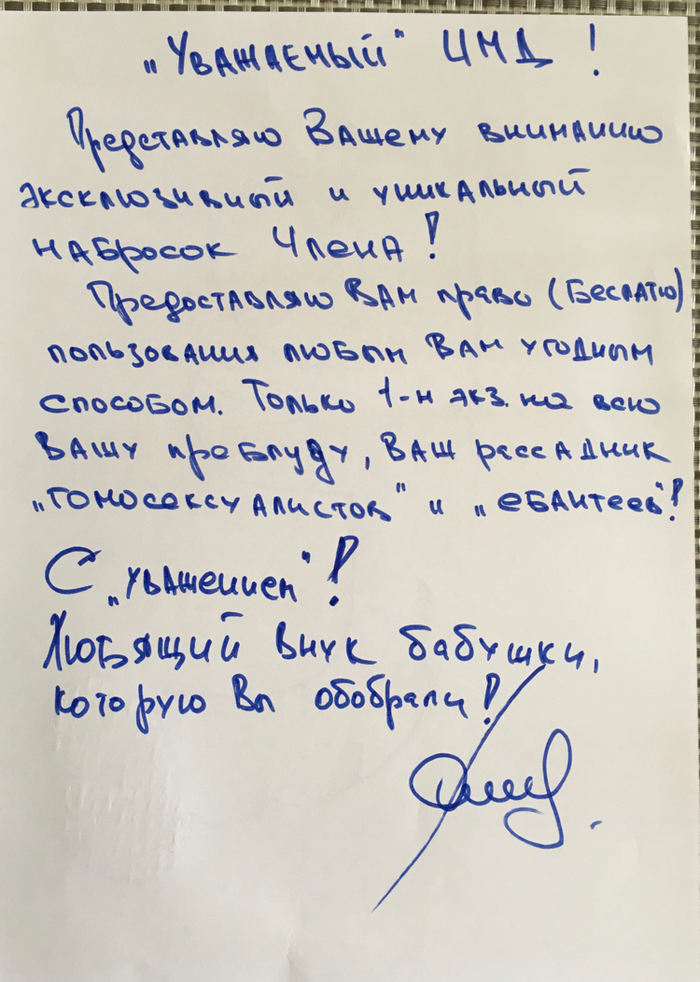 „Уважаемый" ЦМД !
Представляю Вашему вниманию
эксклюзивный и уникальный
набросок Члена!
Предоставляю Вам право (Бесплатно)
пользования любым Вам угодным
способом. Только 1-н экз. на всю
Вашу преблуду, Ваш рассадник
„гомосексуалистов" и „ебантеев"!
С „уважением"!
Любящий внук бабушки,
которую Вы обобрали!